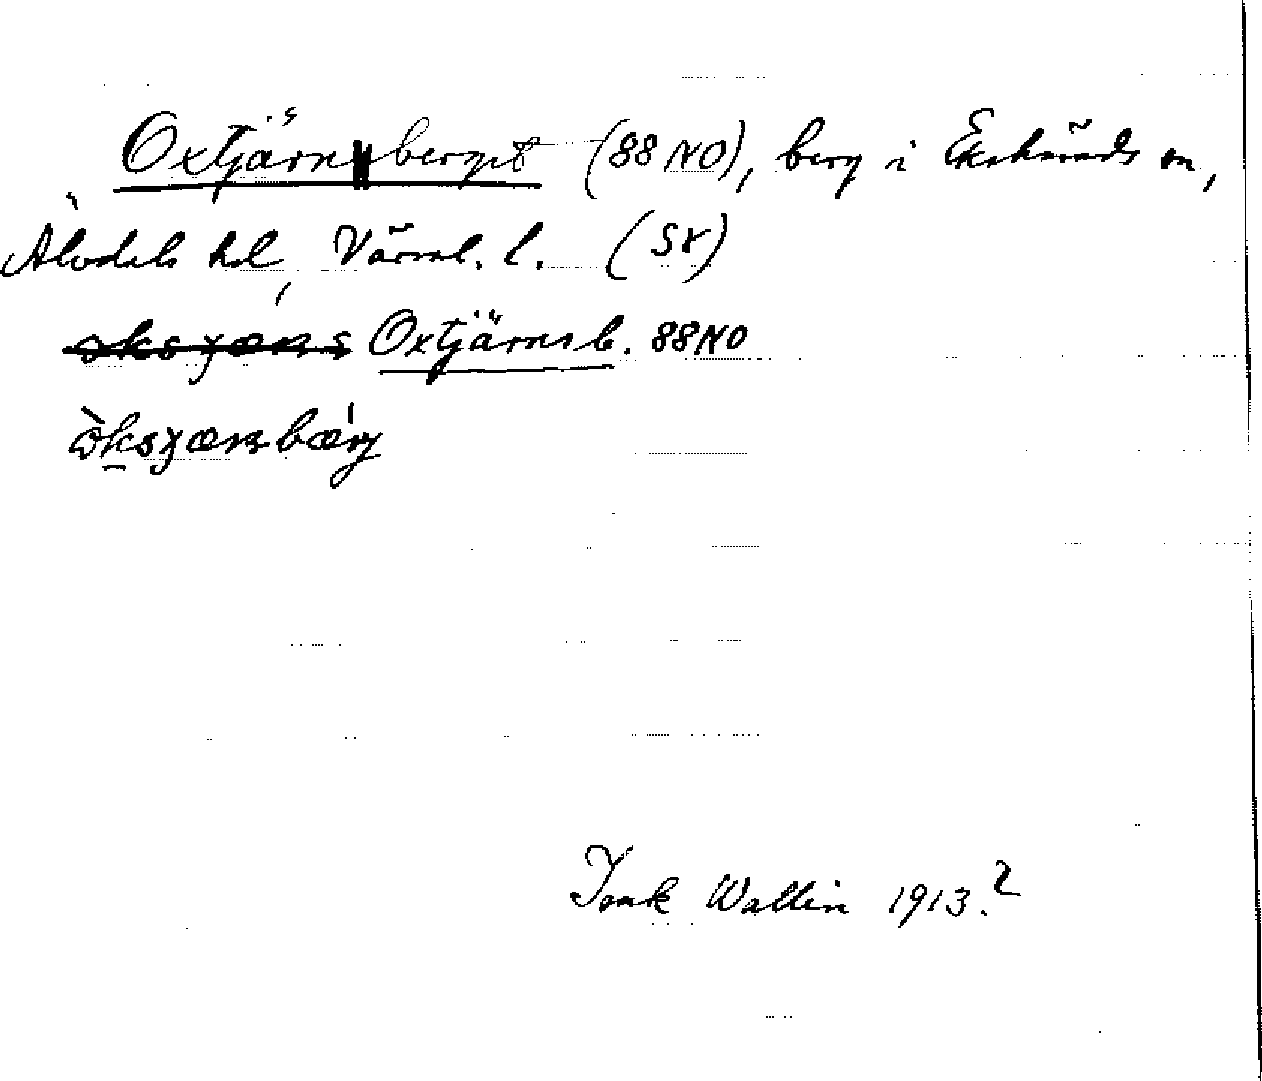 Oxtjärnsberget (88 NO), berg i Ekshärads sn,
Älvdals hd, Värml. l. (SV)
oksjæns Oxtjärnsb. 88NO
òksjænbærj
Isak Wallin 1913.2